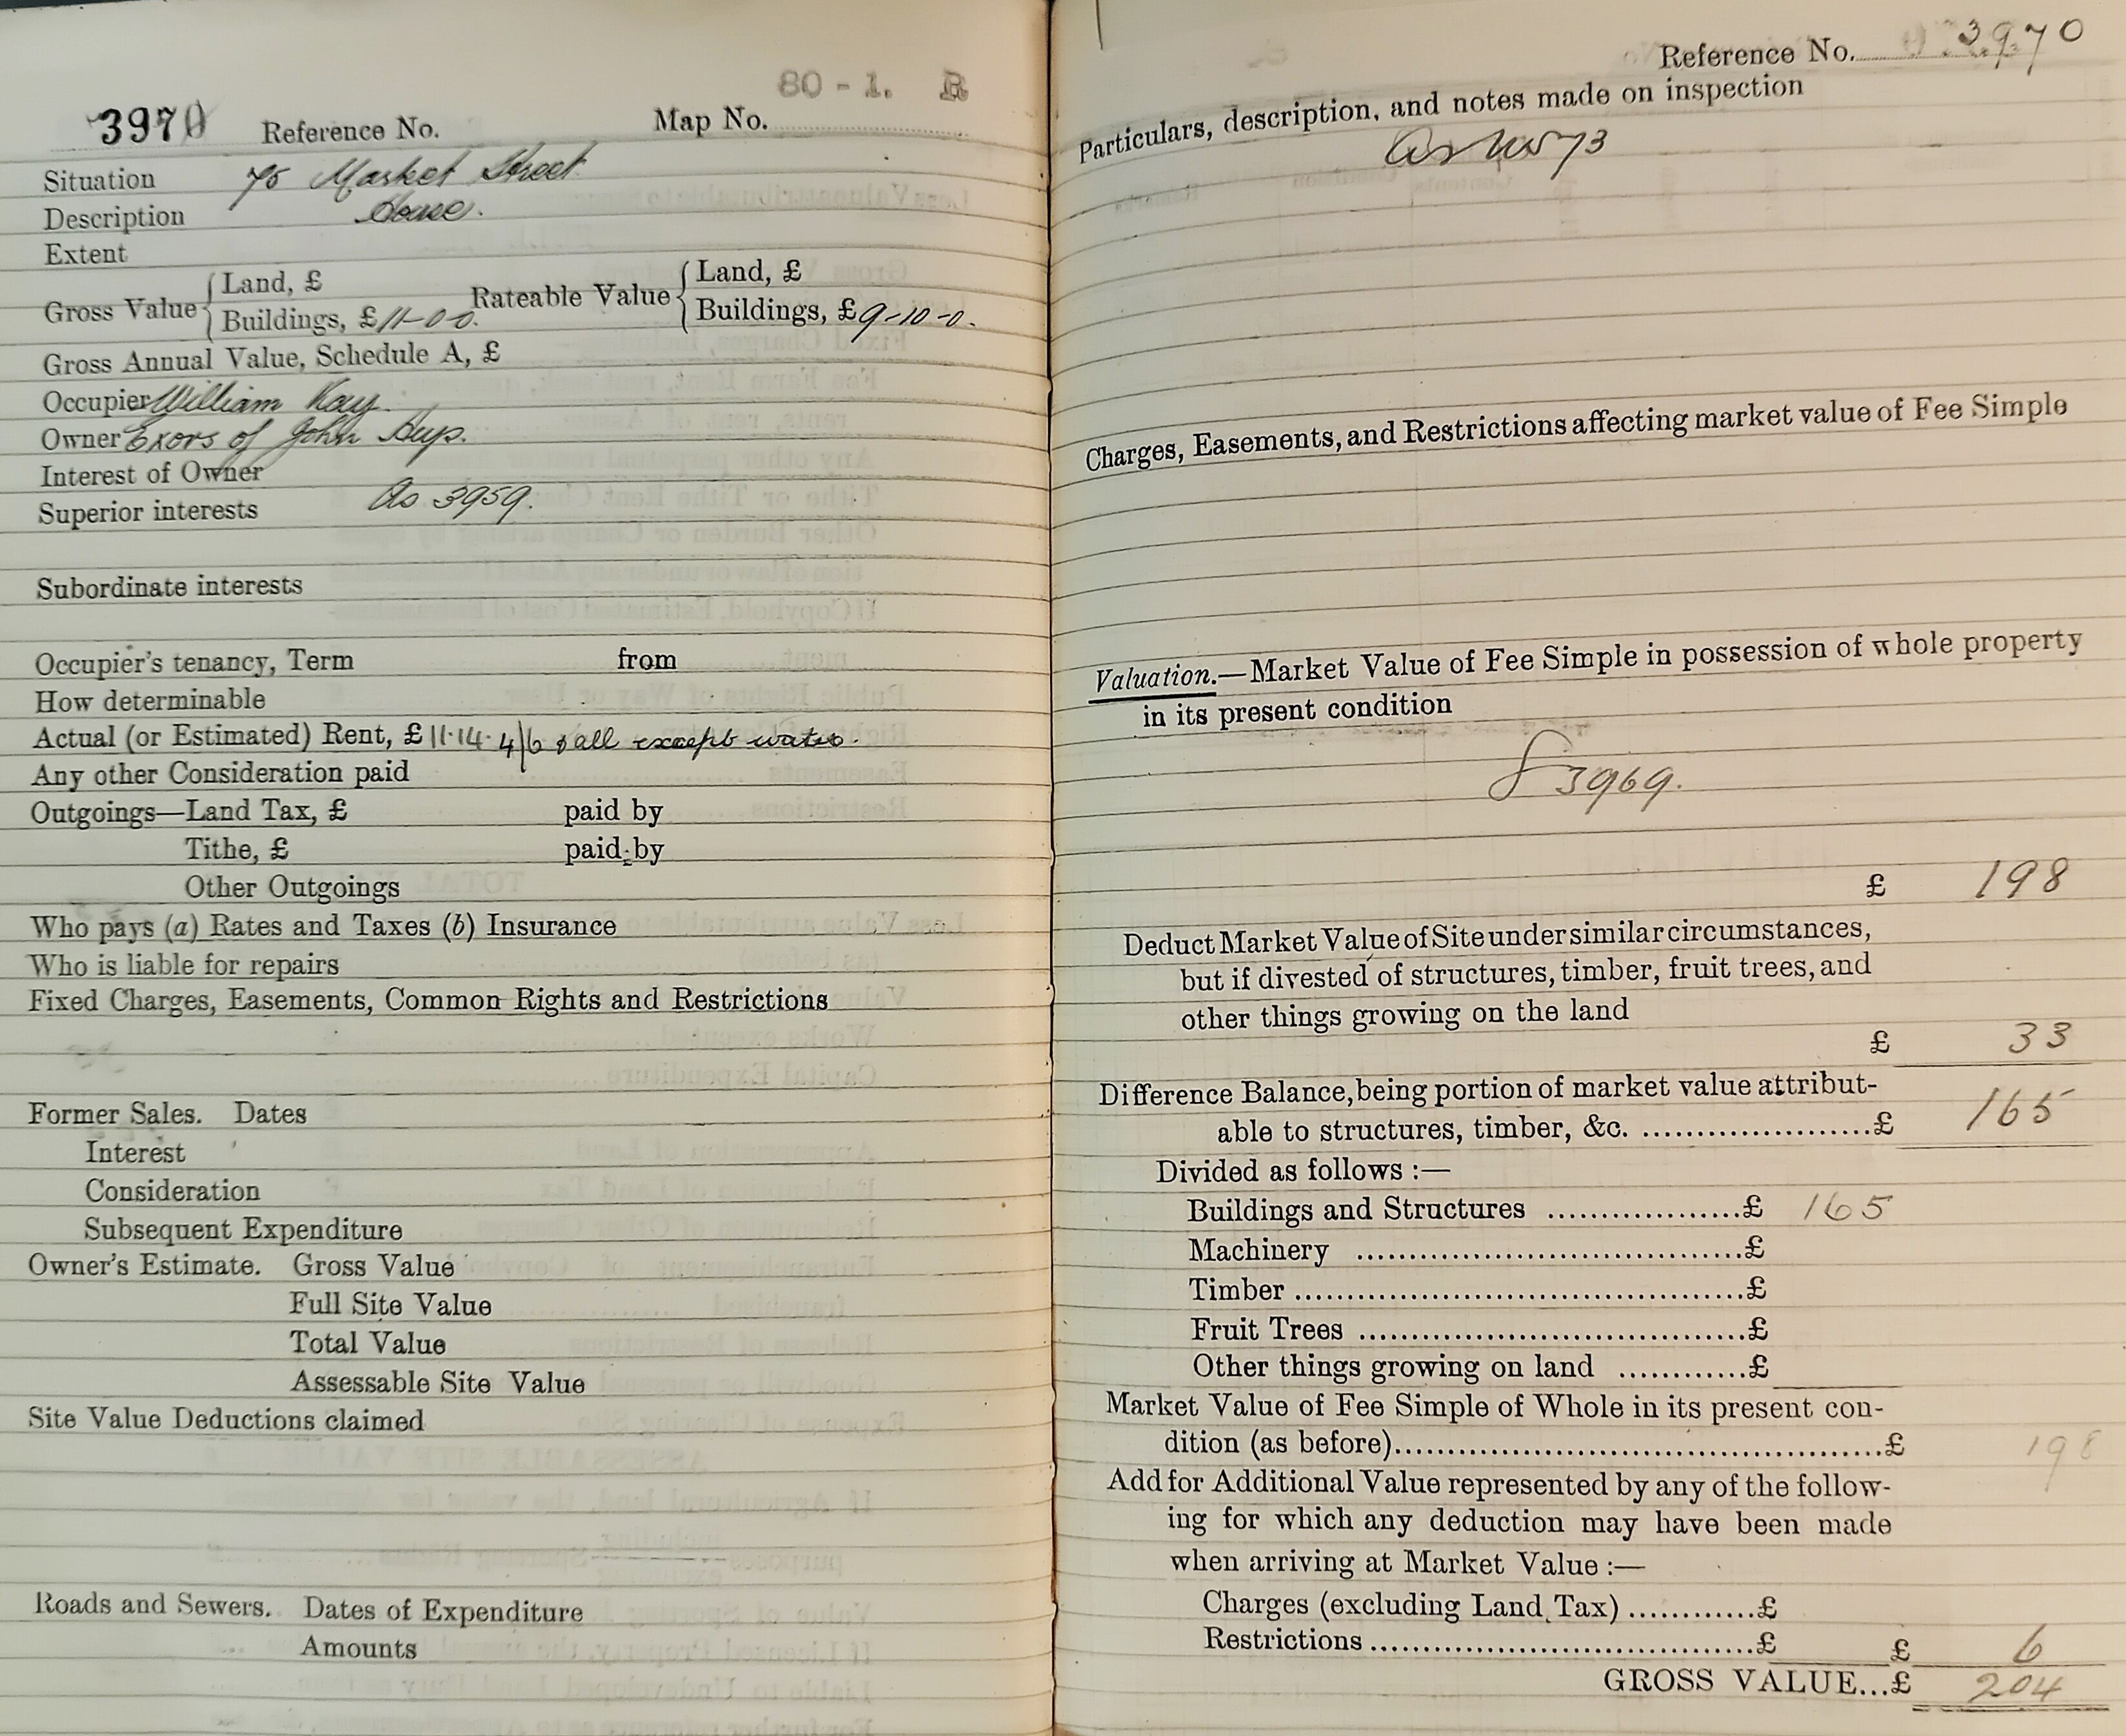 80 - 1. B
3970 Reference No. Map No.
Situation 75 Market Street
Description House.
Extent
Gross Value { Land, £
Buildings, £ 11-0-0. Rateable Value { Land, £
Buildings, £ 9-10-0.
Gross Annual Value, Schedule A, £
Occupier William Kay.
Owner Exors of John
Interest of Owner
Superior interests As 3959.
Subordinate interests
Occupier's tenancy, Term from
How determinable
Actual (or Estimated) Rent, £ 11.14. 4/6 & all except water.
Any other Consideration paid
Outgoings—Land Tax, £ paid by
Tithe, £ paid by
Other Outgoings
Who pays (a) Rates and Taxes (b) Insurance
Who is liable for repairs
Fixed Charges, Easements, Common Rights and Restrictions
Former Sales. Dates
Interest
Consideration
Subsequent Expenditure
Owner's Estimate. Gross Value
Full Site Value
Total Value
Assessable Site Value
Site Value Deductions claimed
Roads and Sewers. Dates of Expenditure
Amounts
Reference No. 3970
Particulars, description, and notes made on inspection
as 73
Charges, Easements, and Restrictions affecting market value of Fee Simple
Valuation.—Market Value of Fee Simple in possession of whole property
in its present condition
3969.
£ 198
Deduct Market Value of Site under similar circumstances,
but if divested of structures, timber, fruit trees, and
other things growing on the land
£ 33
Difference Balance, being portion of market value attribut-
able to structures, timber, &c. ......................£ 165
Divided as follows :—
Buildings and Structures ..................£ 165
Machinery ....................................£
Timber ..........................................£
Fruit Trees ....................................£
Other things growing on land ............£
Market Value of Fee Simple of Whole in its present con-
dition (as before).............................................£ 198
Add for Additional Value represented by any of the follow-
ing for which any deduction may have been made
when arriving at Market Value :—
Charges (excluding Land Tax) ............£
Restrictions ....................................£ £ 6
GROSS VALUE...£ 204